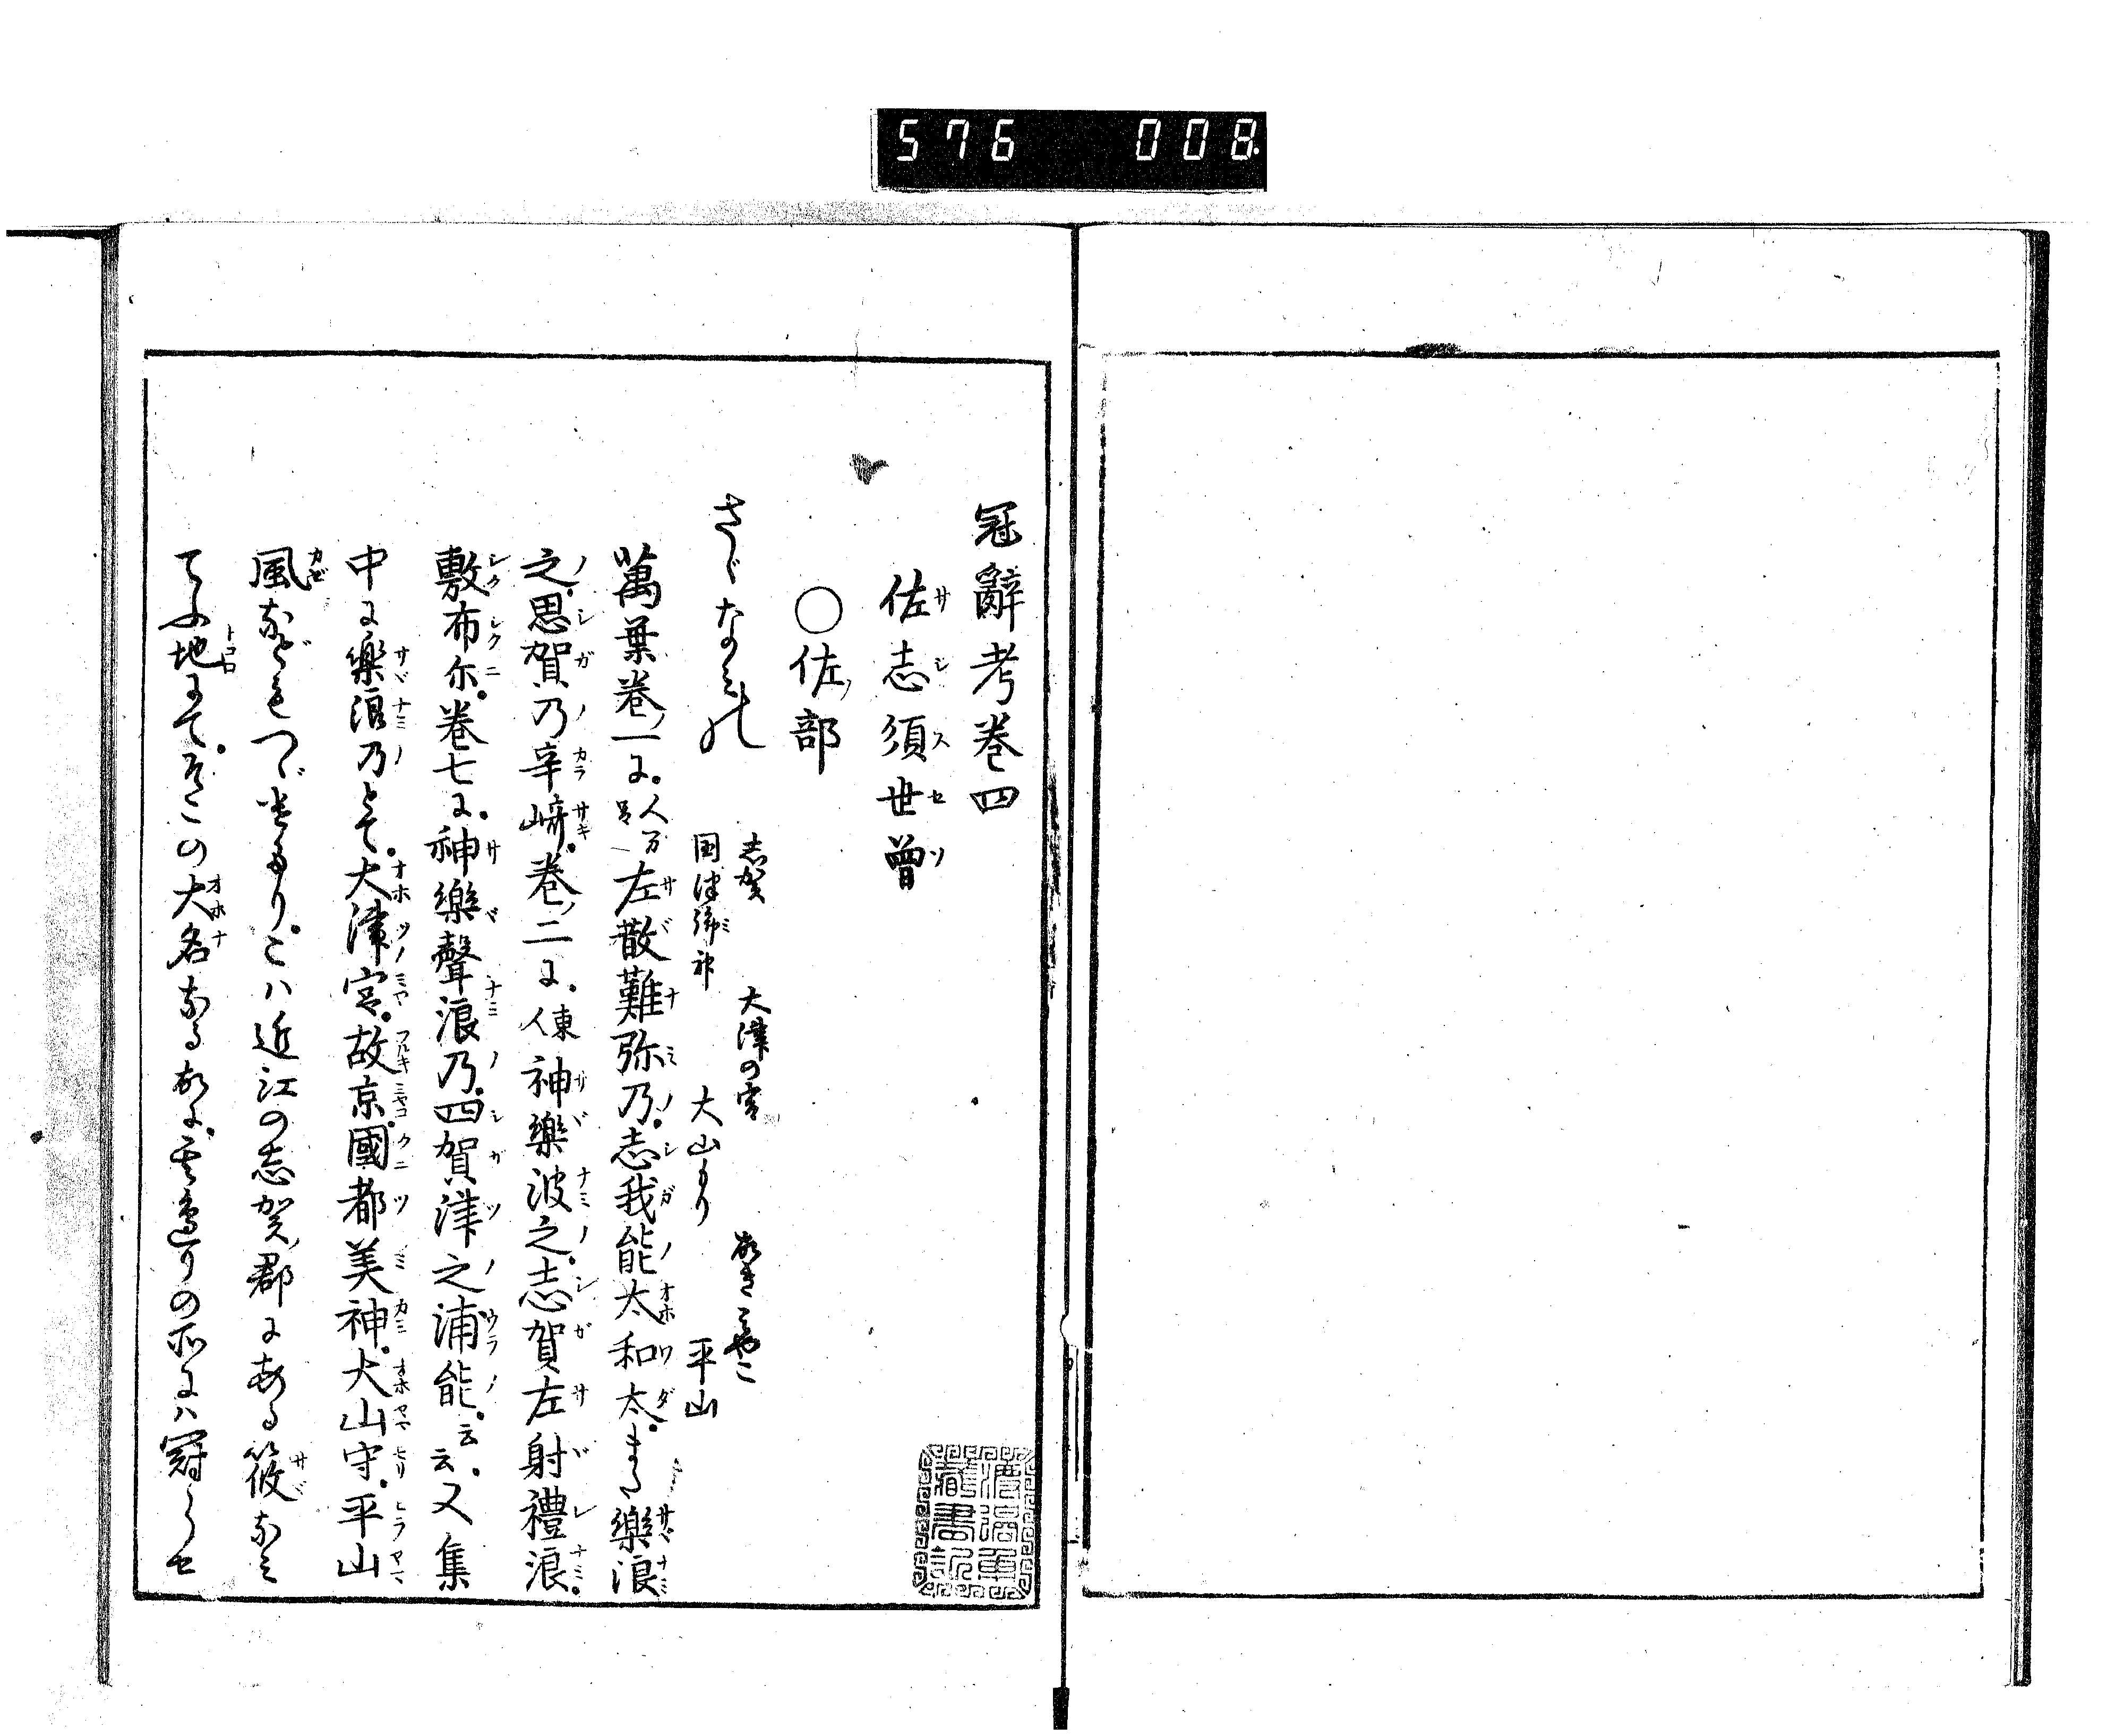 576 008
冠辭考巻四
佐志須世曾
サシスセソ
○佐ノ部
さゞなみの
志賀 大津の宮 故きみやこ
国津御神 大山もり 平山
萬葉巻ノ一に。人万呂左散難弥乃。志我能太和太。また樂浪
之。思賀乃辛﨑。巻ノ二に。東人神樂波之。志賀左射禮浪。
敷布尓。巻七に。神樂聲浪乃。四賀津之浦能。云云。又集
中に樂浪乃とて。大津宮。故京。國都美神。大山守。平山
風などもつゞけたり。こハ近江の志賀ノ郡にある筱なみ
てふ地にて。そこの大名なる故に。其邊りの所にハ冠らせ